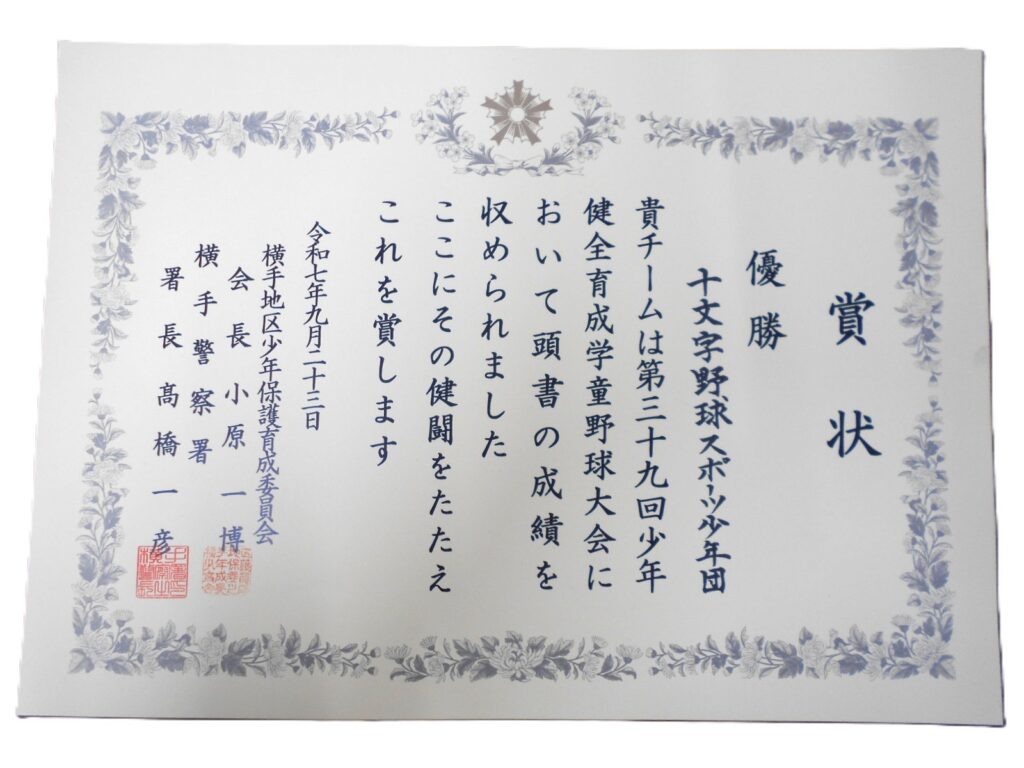 賞状
優勝
十文字野球スポーツ少年団
貴チームは第三十九回少年
健全育成学童野球大会に
おいて頭書の成績を
収められました
ここにその健闘をたたえ
これを賞します
令和七年九月二十三日
横手地区少年保護育成委員会
会長小原一博
横手警察署
署長髙橋一彦